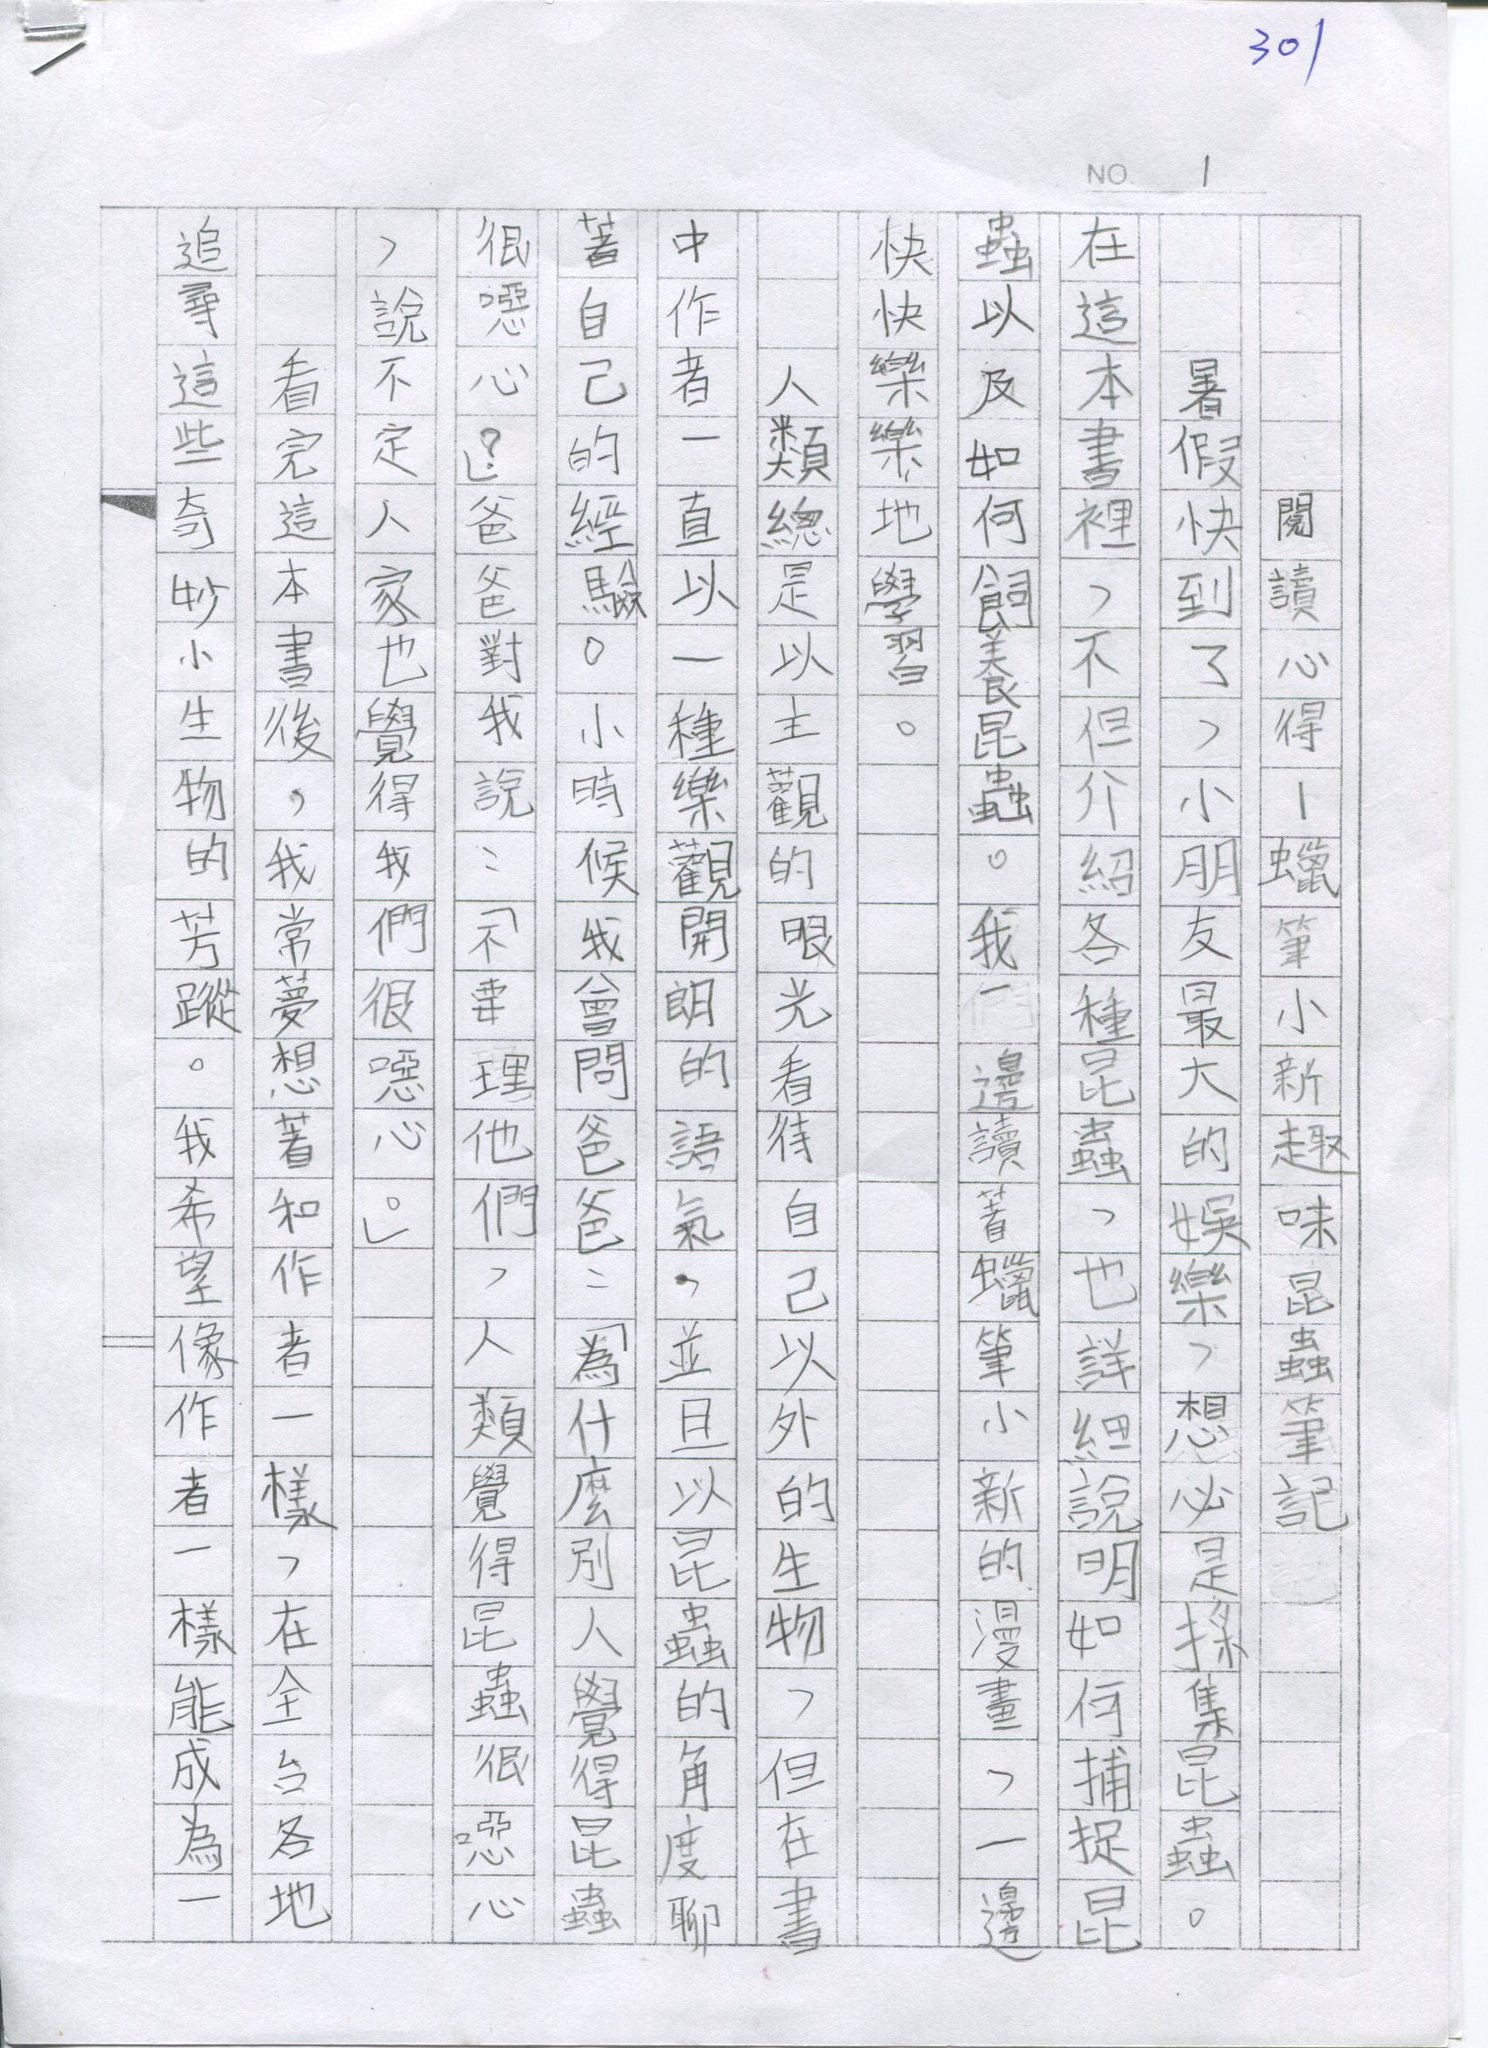 301
NO. 1
閱讀心得—蠟筆小新趣味昆蟲筆記
暑假快到了，小朋友最大的娛樂，想必是採集昆蟲。
在這本書裡，不但介紹各種昆蟲，也詳細說明如何捕捉昆
蟲以及如何飼養昆蟲。我一邊讀著蠟筆小新的漫畫，一邊
快快樂樂地學習。
人類總是以主觀的眼光看待自己以外的生物，但在書
中作者一直以一種樂觀開朗的語氣，並且以昆蟲的角度聊
著自己的經驗。小時候我會問爸爸：「為什麼別人覺得昆蟲
很噁心？」爸爸對我說：「不要理他們，人類覺得昆蟲很噁心
，說不定人家也覺得我們很噁心。」
看完這本書後，我常夢想著和作者一樣，在全台各地
追尋這些奇妙小生物的芳蹤。我希望像作者一樣能成為一